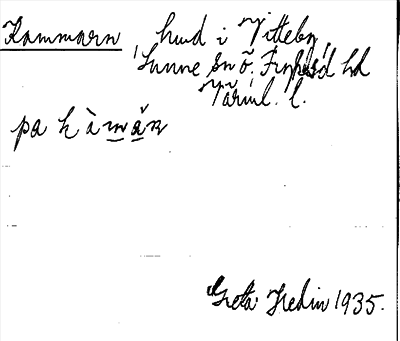 Kammarn, hmd i Vitteby,
Sunne sn ö. Fryksd hd
Värml. l.
pa kàmăṛ
Greta Hedin 1935.